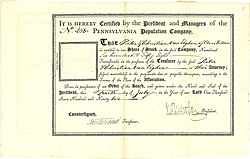 It is hereby Certified by the President and Managers of the
No. 468 Pennsylvania Population Company,
That Pieter & Christiaan van Eeghen of Amsterdam
entitled to one Share of Stock in the said Company, Numbered
Six hundred & Sixty Eight
Transferable in the presence of the Treasurer by the said Pieter
& Christiaan van Eeghen or their Attorney;
subject nevertheless to the payments due or payable thereon, according to the
Terms of the Plan of Association.
Given in pursuance of an Order of the Board, and given under the Hand and Seal of the
President, this day of July in the Year of our Lord One Thousand
Seven Hundred and Ninety
President.
Countersigned,
Treasurer.